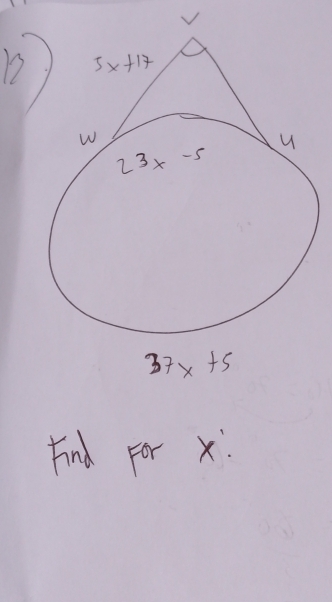 13)
V
5x+17
W
U
23x -5
37x +5
Find for x: